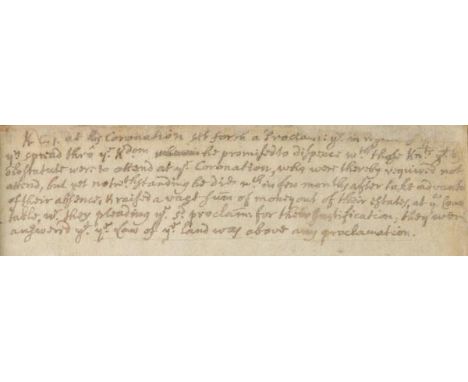 K C. 1. at his Coronation set forth a Proclam: yt in regard
ye spread thro' ye Kdom he promised to dispence wth those Knts yt by
ye Statute were to attend at ye Coronation, who were thereby required not
attend, but yet notwthstanding he did wthin few months after take advantage
of their absence, & raised a vast sum of money out of their estates, at ye Coun
table, wr they pleading ye sd proclam: for their Justification, they were
answered yt ye Law of ye Land was above any proclamation.